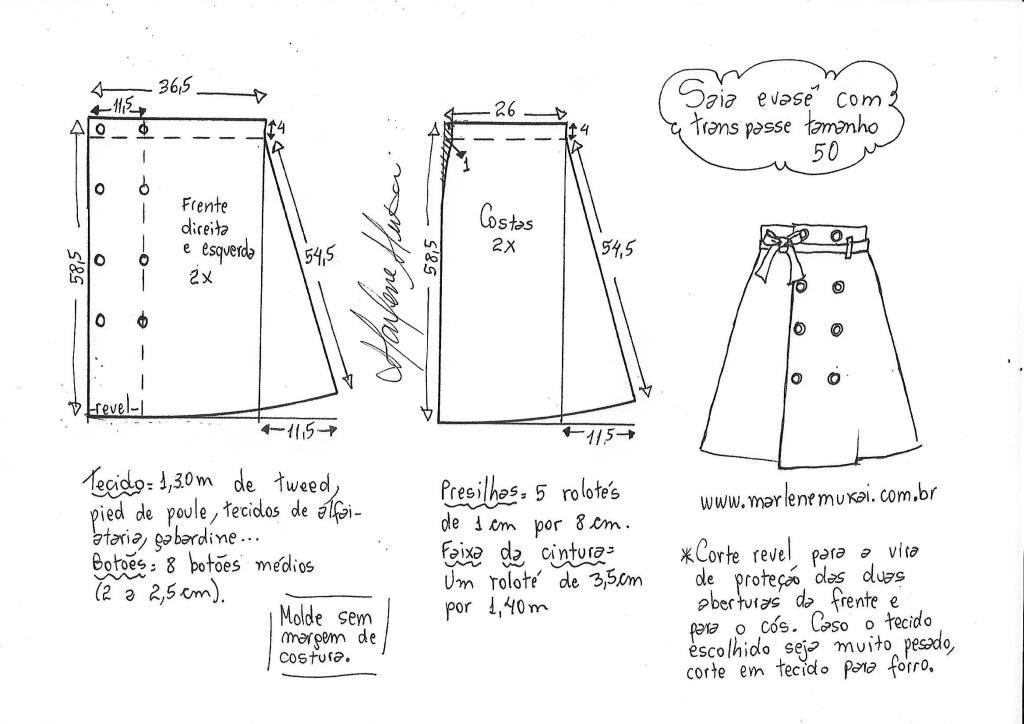 36,5
11,5
4
58,5
Frente
direita
e esquerda
2x
54,5
-revel-
11,5
26
4
1
58,5
Costas
2x
54,5
11,5
Marlene Mukai
Saia evasê com
transpasse tamanho
50
www.marlenemukai.com.br
Tecido= 1,30m de tweed,
pied de poule, tecidos de alfai-
ataria, gabardine...
Botões= 8 botões médios
(2 a 2,5cm).
Molde sem
margem de
costura.
Presilhas= 5 rolotés
de 1cm por 8cm.
Faixa da cintura=
Um roloté de 3,5cm
por 1,40m
*Corte revel para a vira
de proteção das duas
aberturas da frente e
para o cós. Caso o tecido
escolhido seja muito pesado,
corte em tecido para forro.